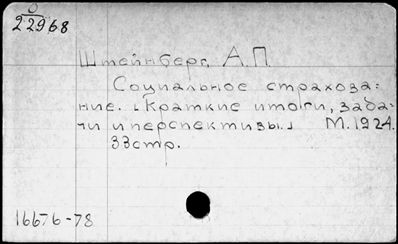 0
22968
Штейнберг, А.П.
Социальное страхова=
ние. [Краткие итоги, зада=
чи и перспективы.] М. 1924.
33стр.
16676-78